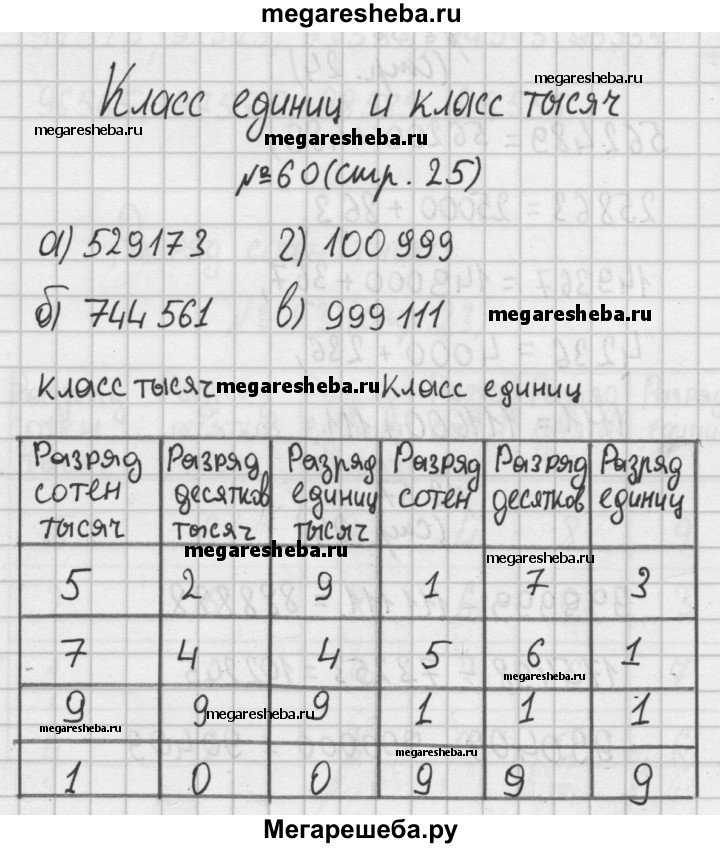 megaresheba.ru
Класс единиц и класс тысяч
megaresheba.ru
megaresheba.ru
megaresheba.ru
№60 (стр. 25)
а) 529173 г) 100 999
б) 744 561 в) 999 111
megaresheba.ru
класс тысяч megaresheba.ru Класс единиц
Разряд сотен тысяч Разряд десятков тысяч Разряд единиц тысяч Разряд сотен Разряд десятков Разряд единиц
megaresheba.ru
megaresheba.ru
5 2 9 1 7 3
7 4 4 5 6 1
megaresheba.ru
9 9 9 1 1 1
megaresheba.ru
megaresheba.ru
megaresheba.ru
1 0 0 9 9 9
Мегарешеба.ру